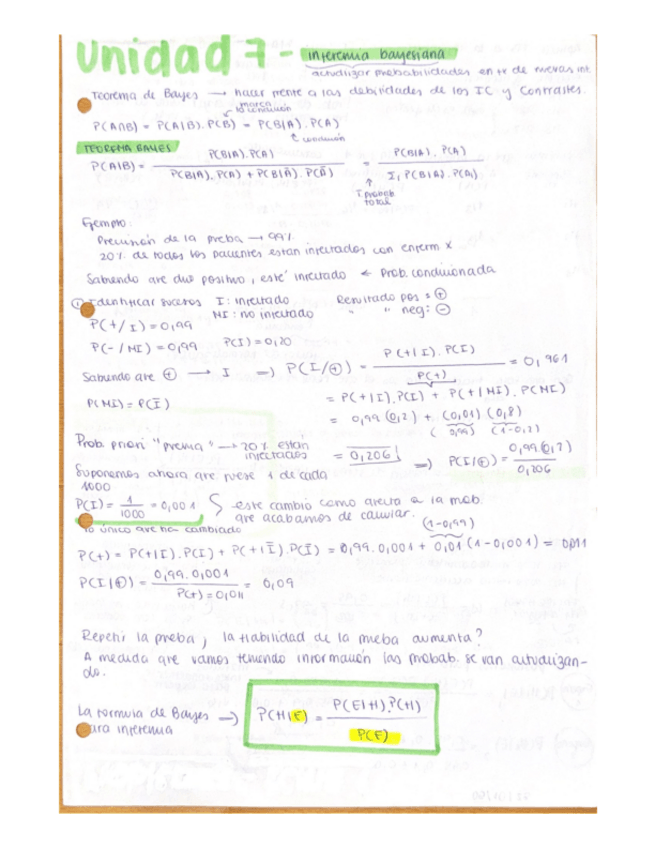 Unidad 7 - inferencia bayesiana
actualizar probabilidades en fx de nuevas inf.
Teorema de Bayes → hacer frente a las debilidades de los IC y contrastes.
marca la condición
P(A∩B) = P(A|B).P(B) = P(B|A).P(A)
condición
TEOREMA BAYES
P(A|B) = P(B|A).P(A) / P(B|A).P(A) + P(B|Ā).P(Ā) = P(B|A).P(A) / Σ, P(B|A).P(A)
T. probab total
Ejemplo:
Precisión de la prueba → 99%
20% de todos los pacientes están infectados con enferm x
Sabiendo que dio positivo, esté infectado ← Prob. condicionada
① Identificar sucesos I: infectado Resultado pos: ⊕
NI: no infectado " " neg: ⊖
P(+/I) = 0,99
P(-/NI) = 0,99 P(I) = 0,20
Sabiendo que ⊕ → I ⇒ P(I/⊕) = P(+|I).P(I) / P(+) = 0,961
P(NI) = P(Ī)
= P(+|I).P(I) + P(+|NI).P(NI)
= 0,99 (0,2) + (0,01) (0,8)
(0,99) (1-0,2)
Prob. priori "previa" → 20% están infectados
= 0,206 ⇒ P(I/⊕) = 0,99.(0,2) / 0,206
Suponemos ahora que fuese 1 de cada
1000
P(I) = 1/1000 = 0,001 este cambio como afecta a la prob.
que acabamos de calcular.
lo único que ha cambiado
(1-0,99)
P(+) = P(+|I).P(I) + P(+|Ī).P(Ī) = 0,99.0,001 + 0,01 (1-0,001) = 0,011
P(I|⊕) = 0,99.0,001 / P(+)=0,011 = 0,09
Repetir la prueba, la fiabilidad de la prueba aumenta?
A medida que vamos teniendo información las probab. se van actualizan-
do.
La fórmula de Bayes → P(H|E) = P(E|H).P(H) / P(E)
para inferencia